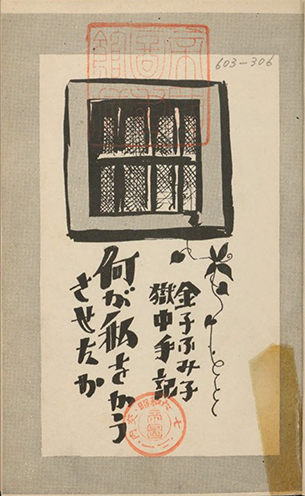 603-306
金子ふみ子
獄中手記
何が私をかう
させたか